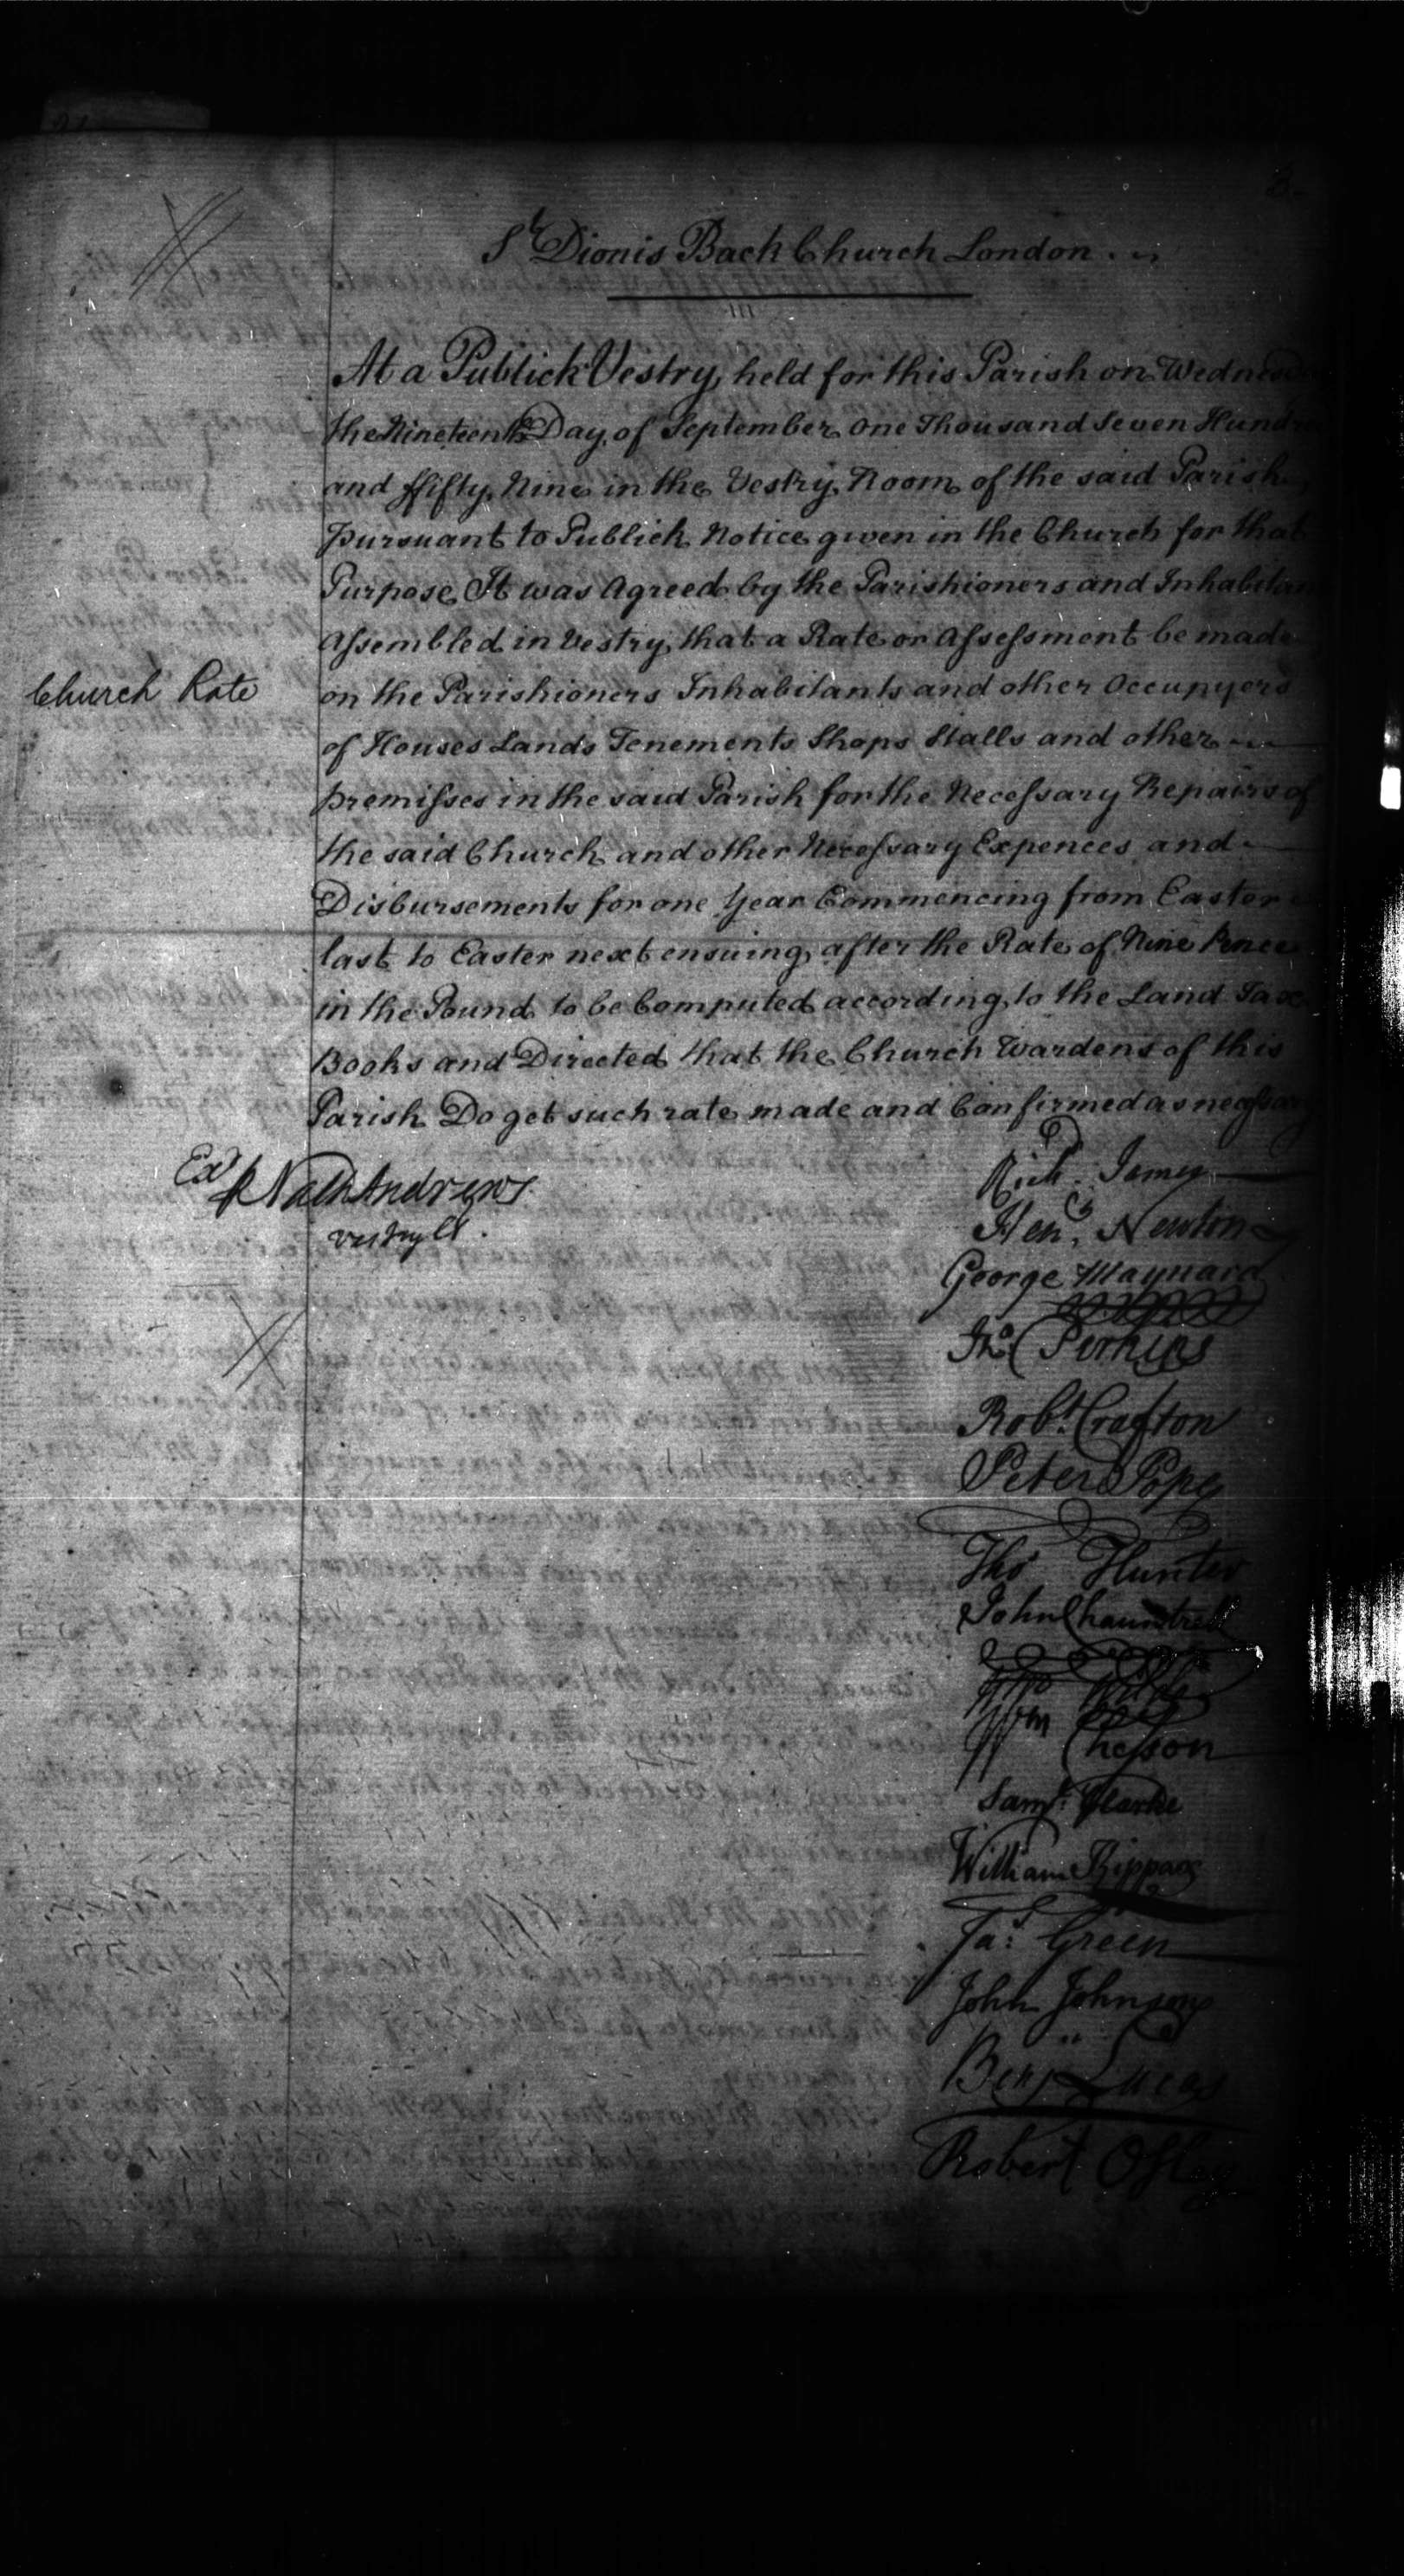 St Dionis Back Church London
At a Publick Vestry, held for this Parish on Wednesd
the Nineteenth Day of September One Thousand Seven Hundre
and ffifty Nine in the Vestry Room of the said Parish
pursuant to Publick Notice given in the Church for that
Purpose It was Agreed by the Parishioners and Inhabitan
Assembled in Vestry, that a Rate or Assessment be made
Church Rate
on the Parishioners Inhabitants and other Occupyers
of Houses Lands Tenements Shops Stalls and other
premisses in the said Parish for the Necessary Repairs of
the said Church and other Necessary Expences and
Disbursements for one Year Commencing from Easter
last to Easter next ensuing, after the Rate of Nine Pence
in the Pound to be Computed according, to the Land Tax
Books and Directed that the Church Wardens of this
Parish Do get such rate made and Confirmed as necessary
Exd
p Nath Andrews
vestry Cl.
Richd
Heny Newton
George Maynard
Thos Perkins
Robt. Crafton
Peter Pope
Thos Hunter
John Chauntrell
Wm
Wm Chesson
Saml. Clarke
William Rippax
Jas. Green
John Johnson
Benj Lucas
Robert